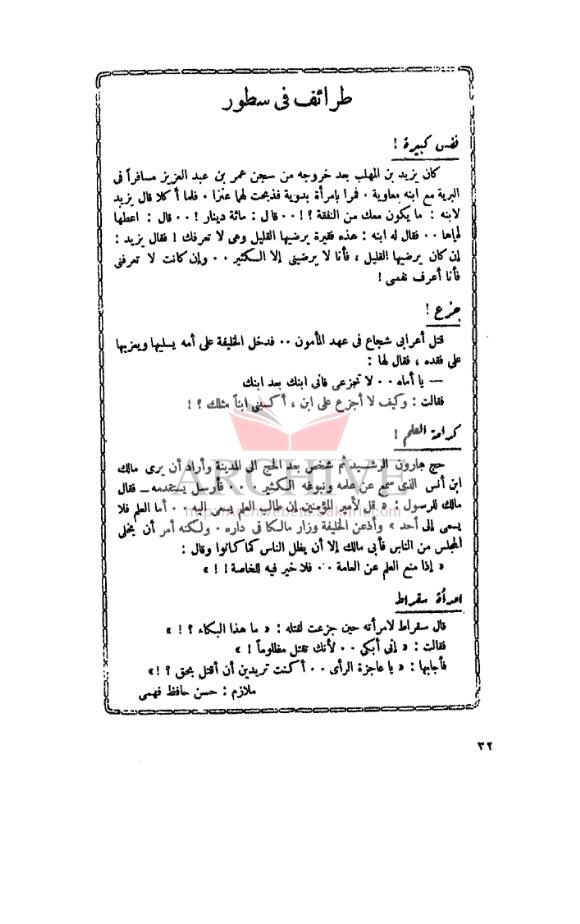 طرائف فى سطور
نفس كبيرة !
كان يزيد بن المهلب بعد خروجه من سجن عمر بن عبد العزيز مسافراً فى
البرية مع ابنه معاوية ٠ فمرا بإمرأة بدوية فذبحت لهما عنزا ٠ فلما أكلا قال يزيد
لابنه : ما يكون معك من النفقة ؟ ! ٠٠ قال : مائة دينار ! ٠٠ قال : اعطها
إياها ٠٠ فقال له ابنه : هذه فقيرة يرضيها القليل وهى لا تعرفك ! فقال يزيد :
إن كان يرضيها القليل ، فأنا لا يرضينى إلا الكثير ٠٠ وإن كانت لا تعرفنى
فأنا أعرف نفسى !
جزع !
قتل أعرابى شجاع فى عهد المأمون ٠٠ فدخل الخليفة على أمه يسليها ويعزيها
على فقده ، فقال لها :
— يا أماه ٠٠ لا تجزعى فانى ابنك بعد ابنك
فقالت : وكيف لا أجزع على ابن ، أكسبنى ابناً مثلك ؟ !
كرامة العلم !
حج هارون الرشيد ثم شخص بعد الحج الى المدينة وأراد أن يرى مالك
ابن أنس الذى سمع عن علمه ونبوغه الكثير ٠٠٠ فأرسل يستقدمه – فقال
مالك للرسول : « قل لأمير المؤمنين إن طالب العلم يسعى إليه ٠٠ أما العلم فلا
يسعى إلى أحد » وأذعن الخليفة وزار مالكا فى داره ٠ ولكنه أمر أن يخلى
المجلس من الناس فأبى مالك إلا أن يظل الناس كما كانوا وقال :
« إذا منع العلم عن العامة ٠٠ فلا خير فيه للخاصة ! ! »
امرأة سقراط
قال سقراط لامرأته حين جزعت لقتله : « ما هذا البكاء ؟ ! »
فقالت : « إنى أبكى ٠٠ لأنك تقتل مظلوماً ! »
فأجابها : « يا عاجزة الرأى ٠٠ أكنت تريدين أن أقتل بحق ؟ ! »
ملازم : حسن حافظ فهمى
ARCHIVE
٣٢